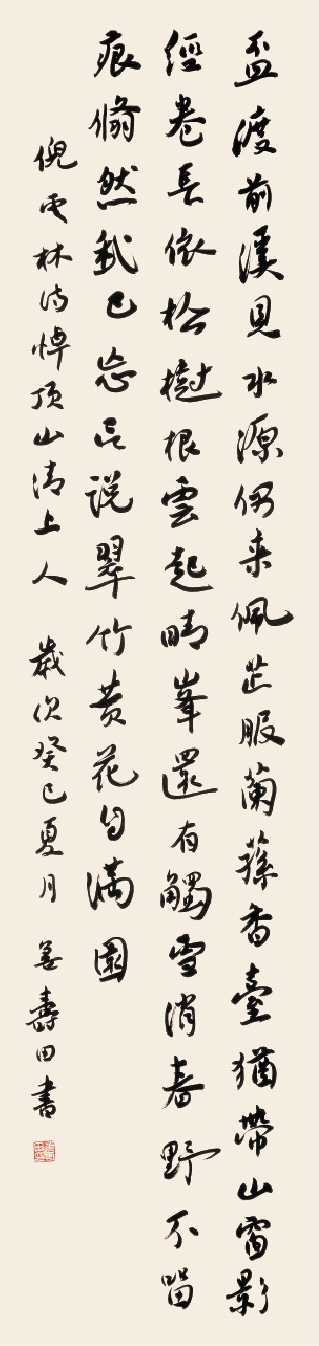 盃渡前溪見水源仍来佩芷服蘭蓀香臺猶帶山窗影
經卷長依松樹根雲起晴峯還有觸雪消春野不留
痕翛然我已忘言说翠竹黄花自満園
倪雲林诗悼顶山清上人 歲次癸巳夏月 姜壽田書